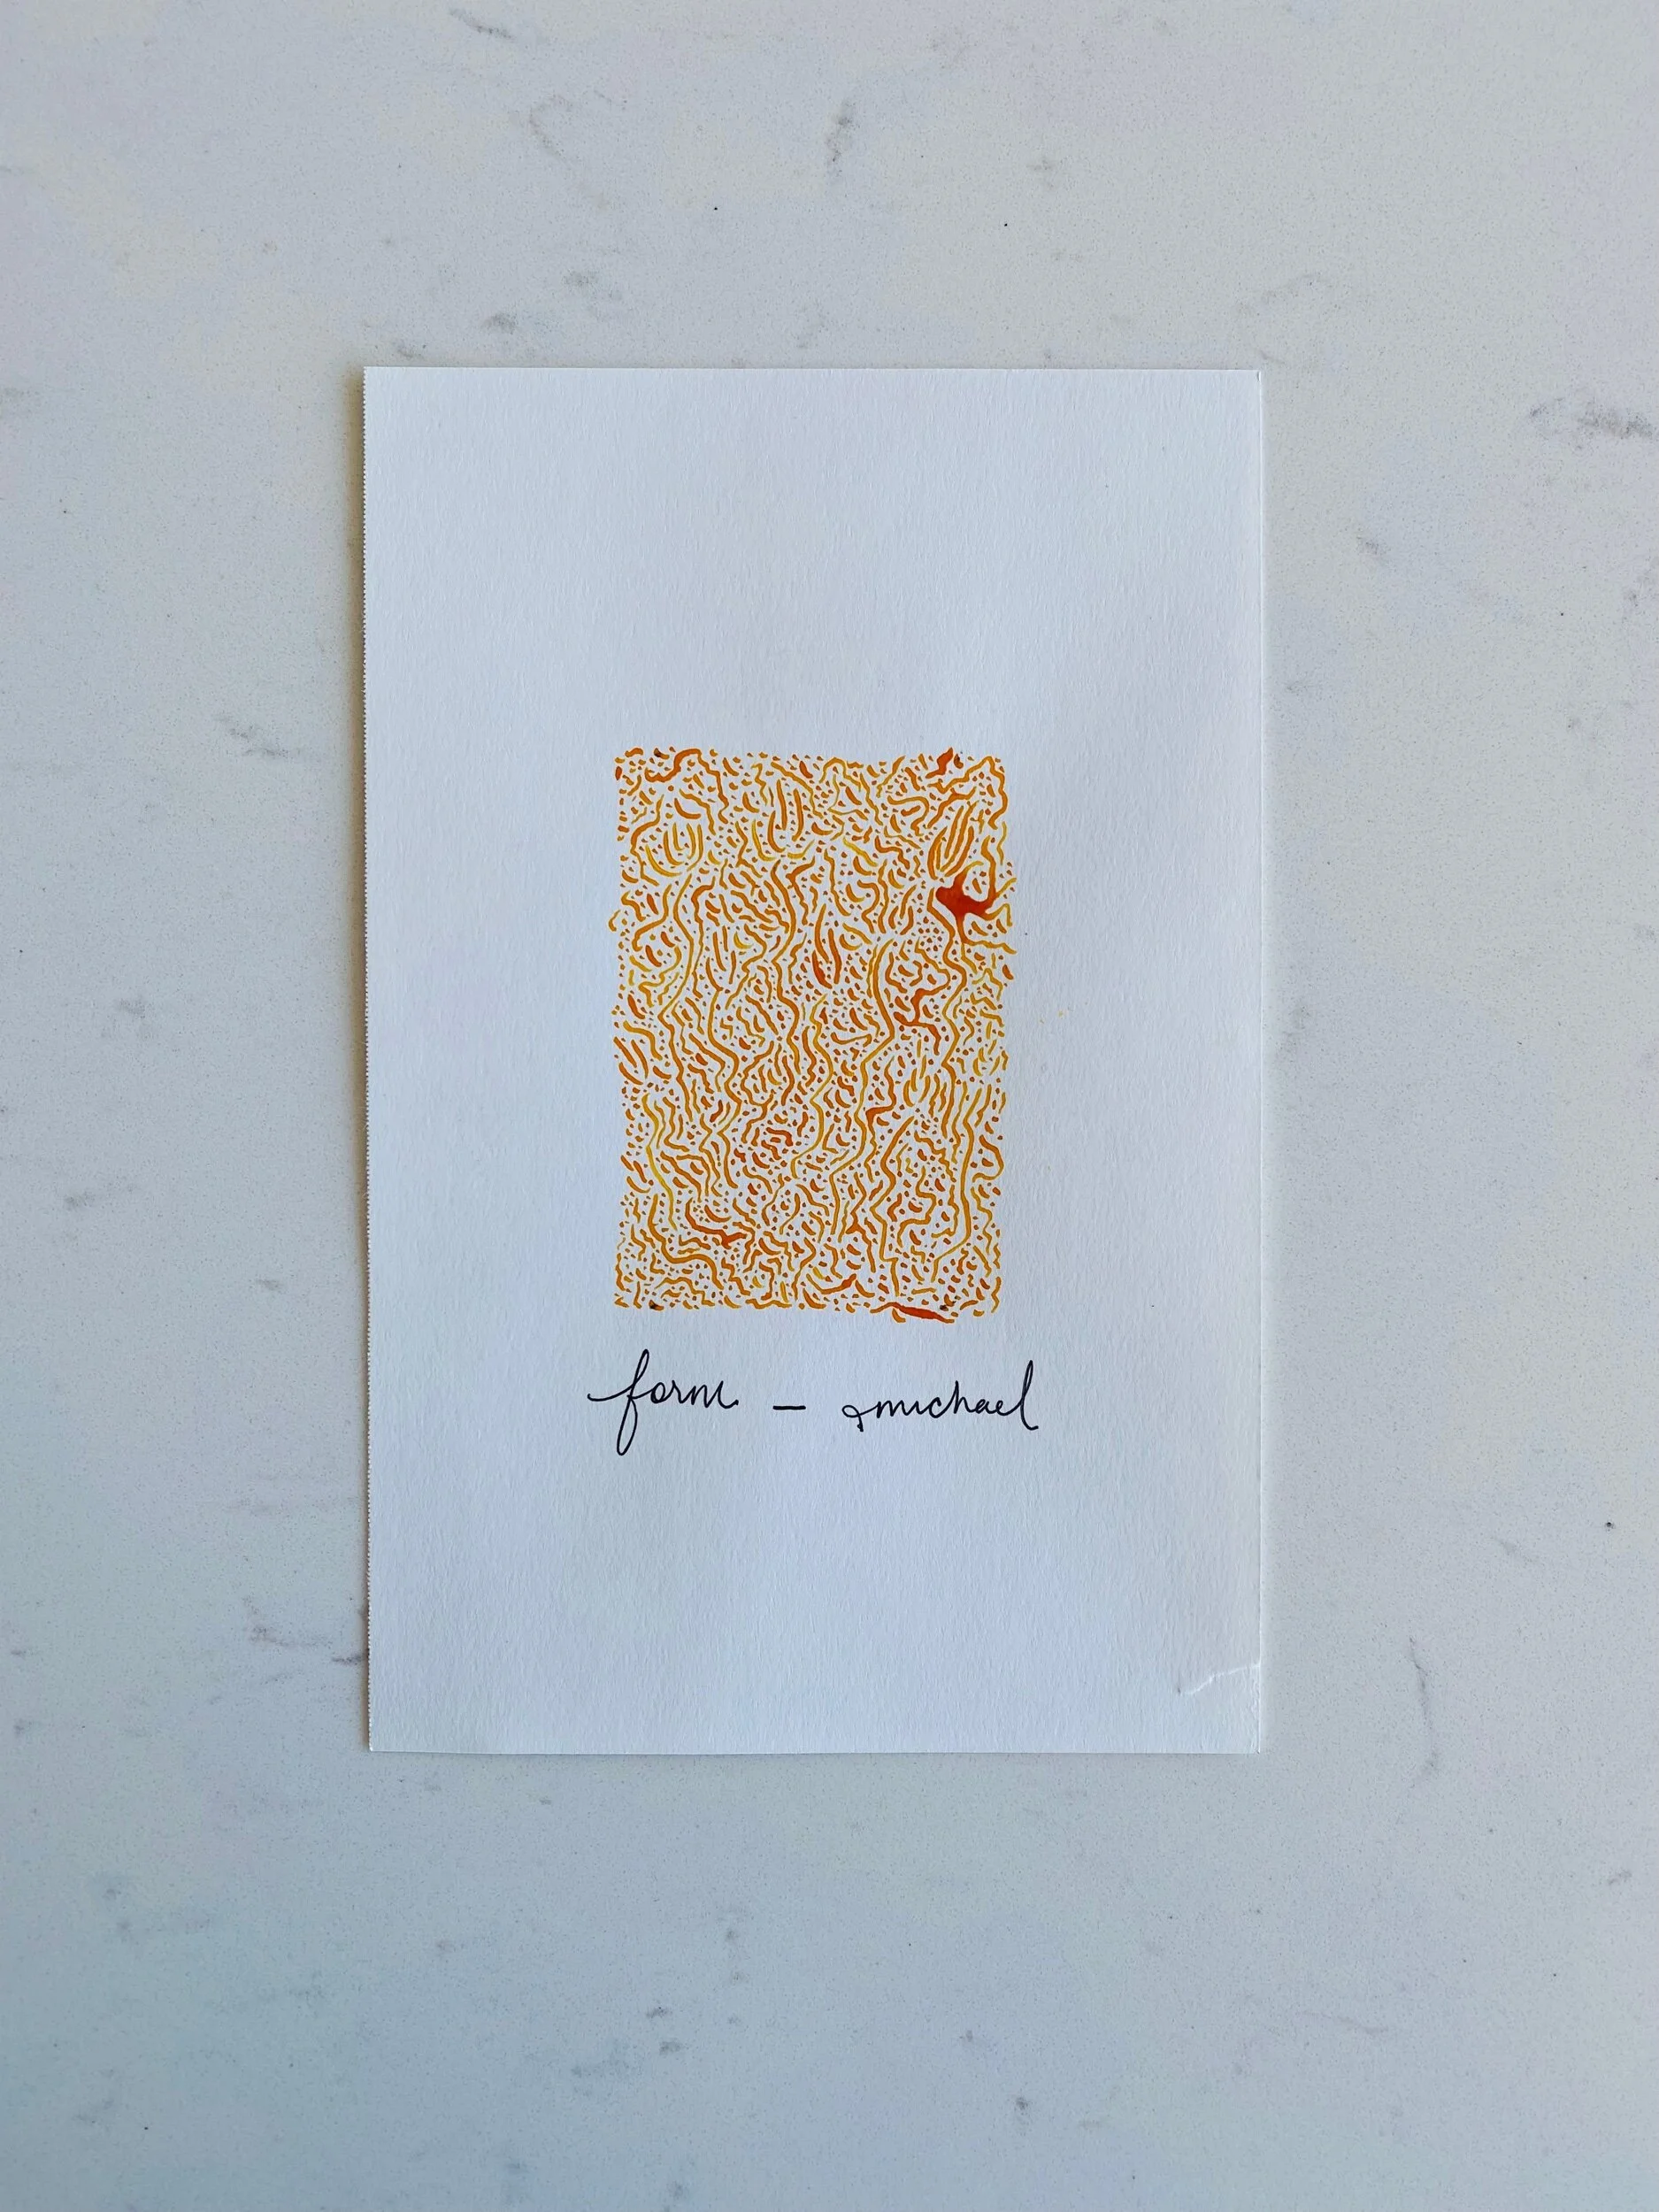 form – michael